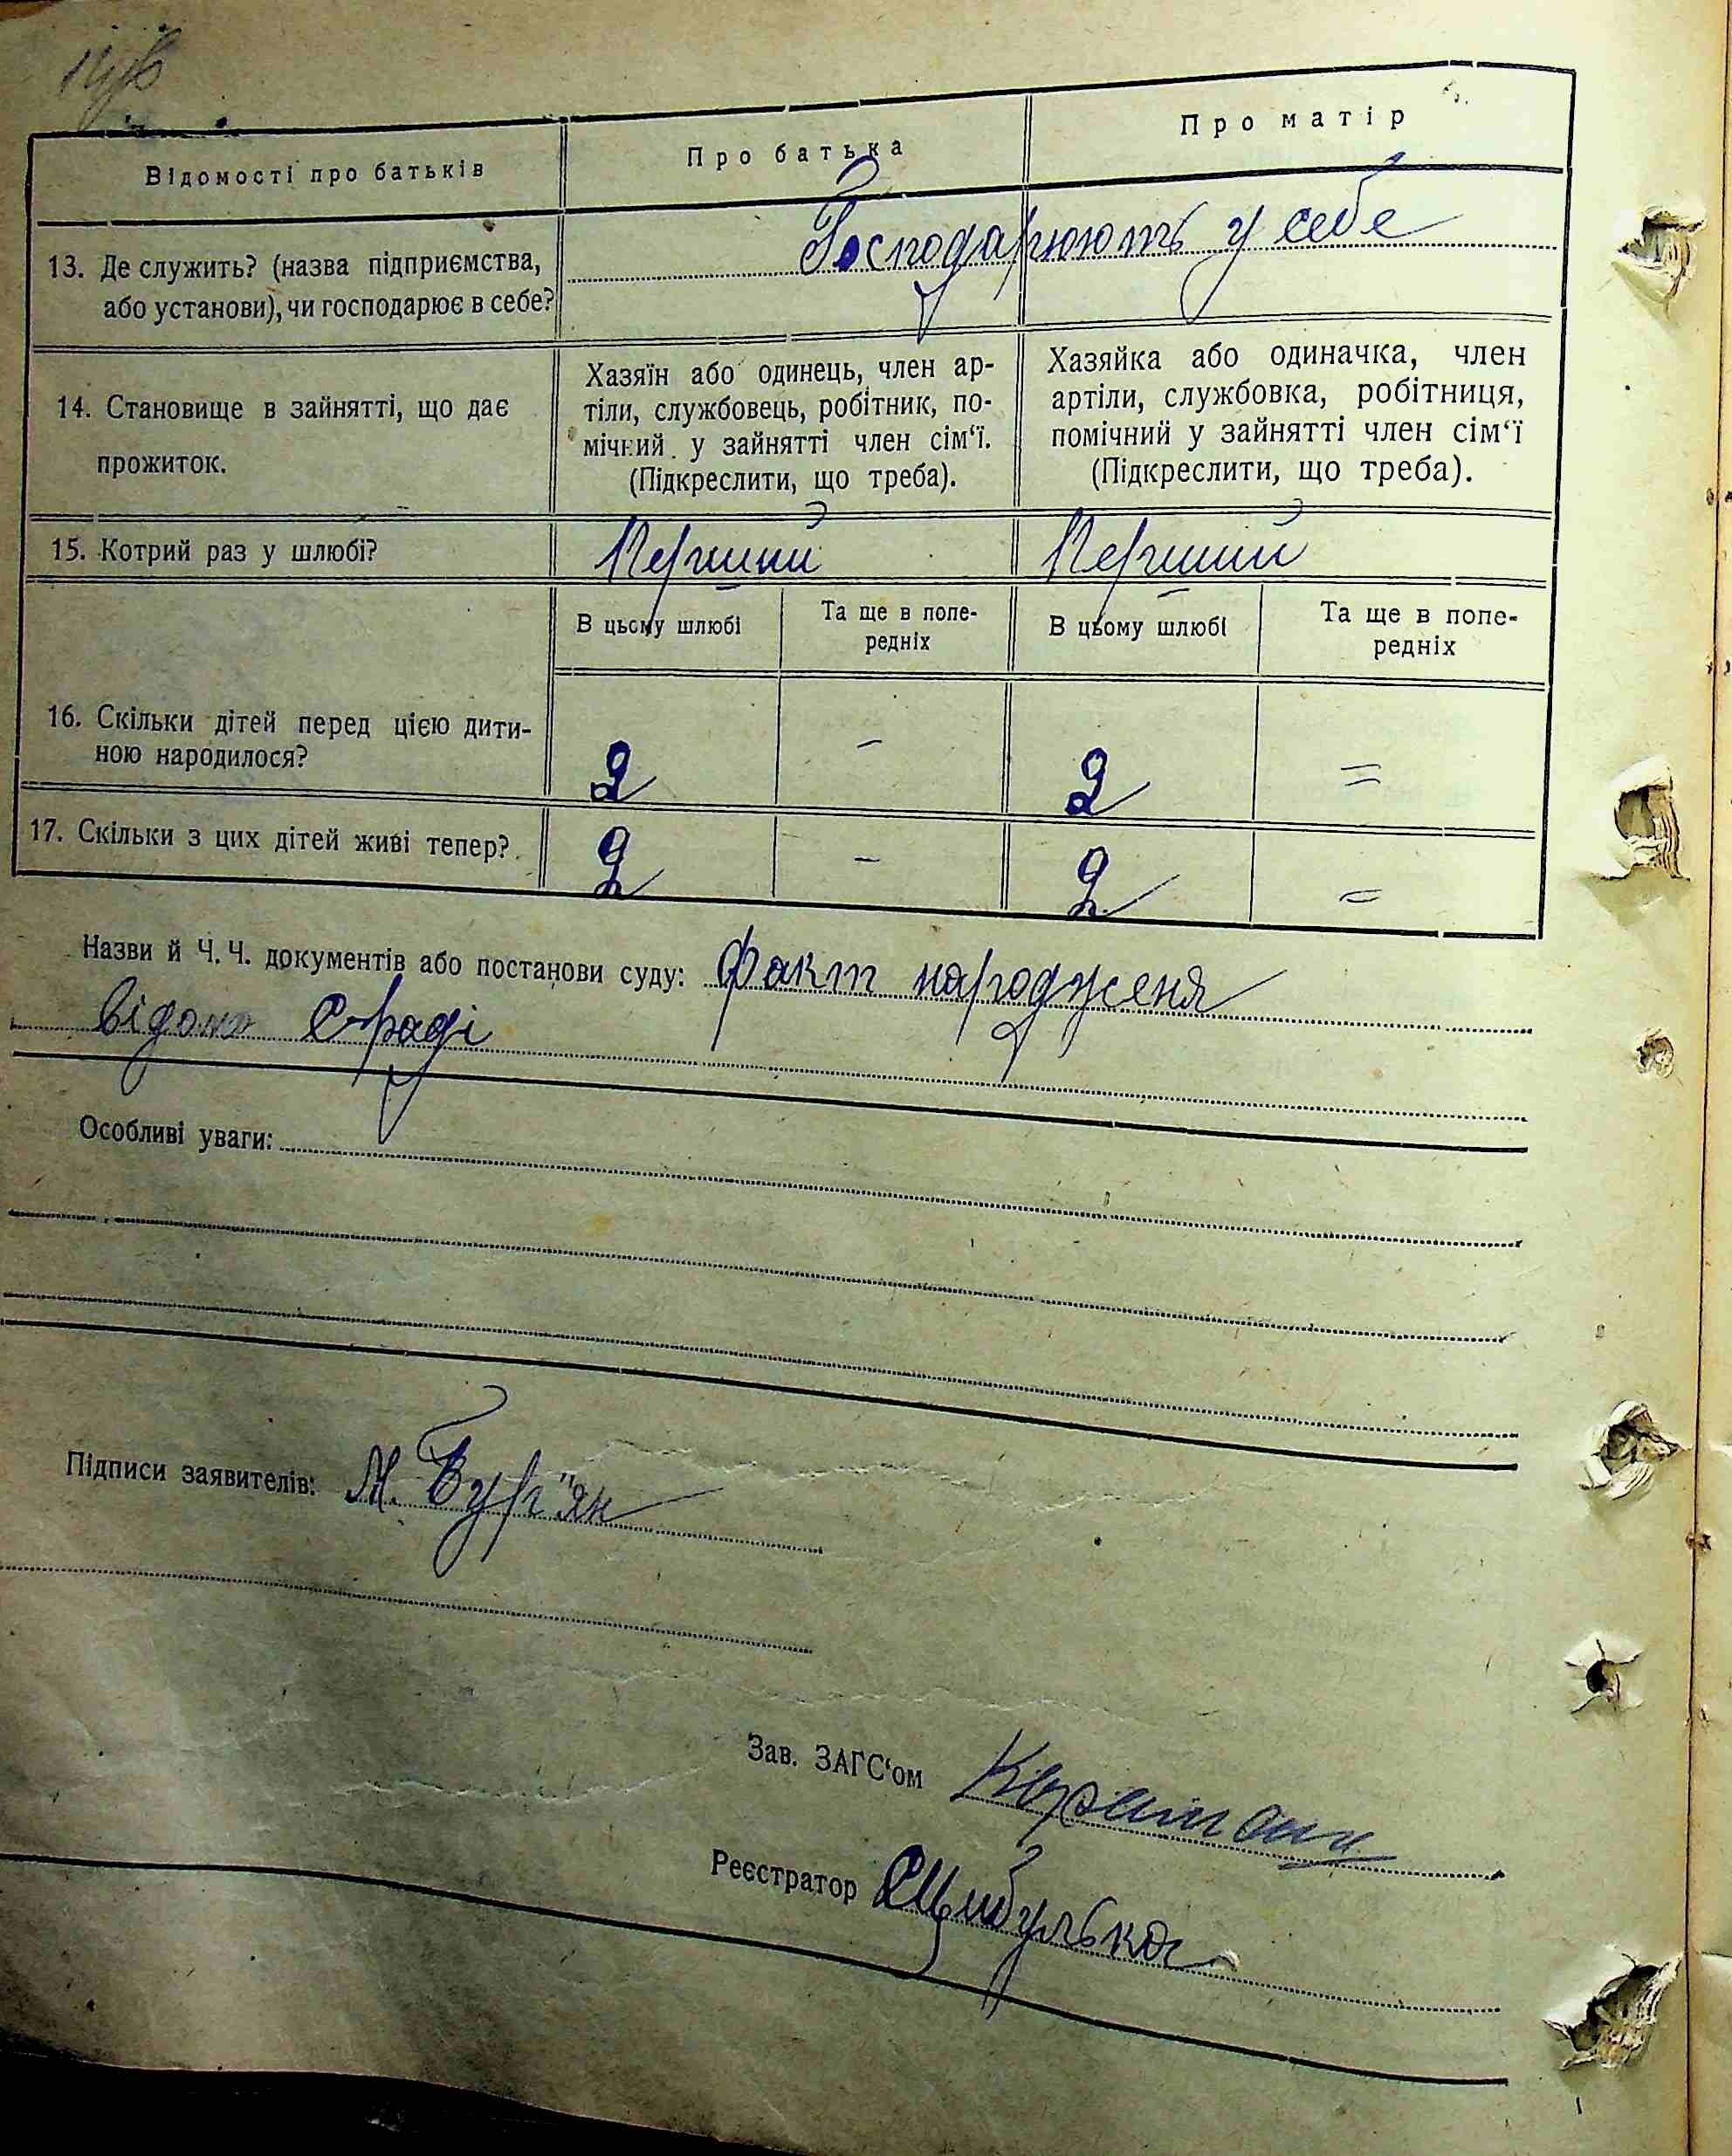 Відомості про батьків
Про батька
Про матір
13. Де служить? (назва підприємства,
або установи), чи господарює в себе?
Господарюють у себе
14. Становище в зайнятті, що дає
прожиток.
Хазяїн або одинець, член ар-
тіли, службовець, робітник, по-
мічний у зайнятті член сім‘ї.
(Підкреслити, що треба).
Хазяйка або одиначка, член
артіли, службовка, робітниця,
помічний у зайнятті член сім‘ї
(Підкреслити, що треба).
15. Котрий раз у шлюбі?
Перший
Перший
В цьому шлюбі
Та ще в попе-
редніх
В цьому шлюбі
Та ще в попе-
редніх
16. Скільки дітей перед цією дити-
ною народилося?
2
–
2
=
17. Скільки з цих дітей живі тепер?
2
–
2
=
Назви й Ч. Ч. документів або постанови суду: факт народженя
відомо с-раді
Особливі уваги:
Підписи заявителів: М. Бур"ян
Зав. ЗАГС‘ом
Реєстратор Цибулька